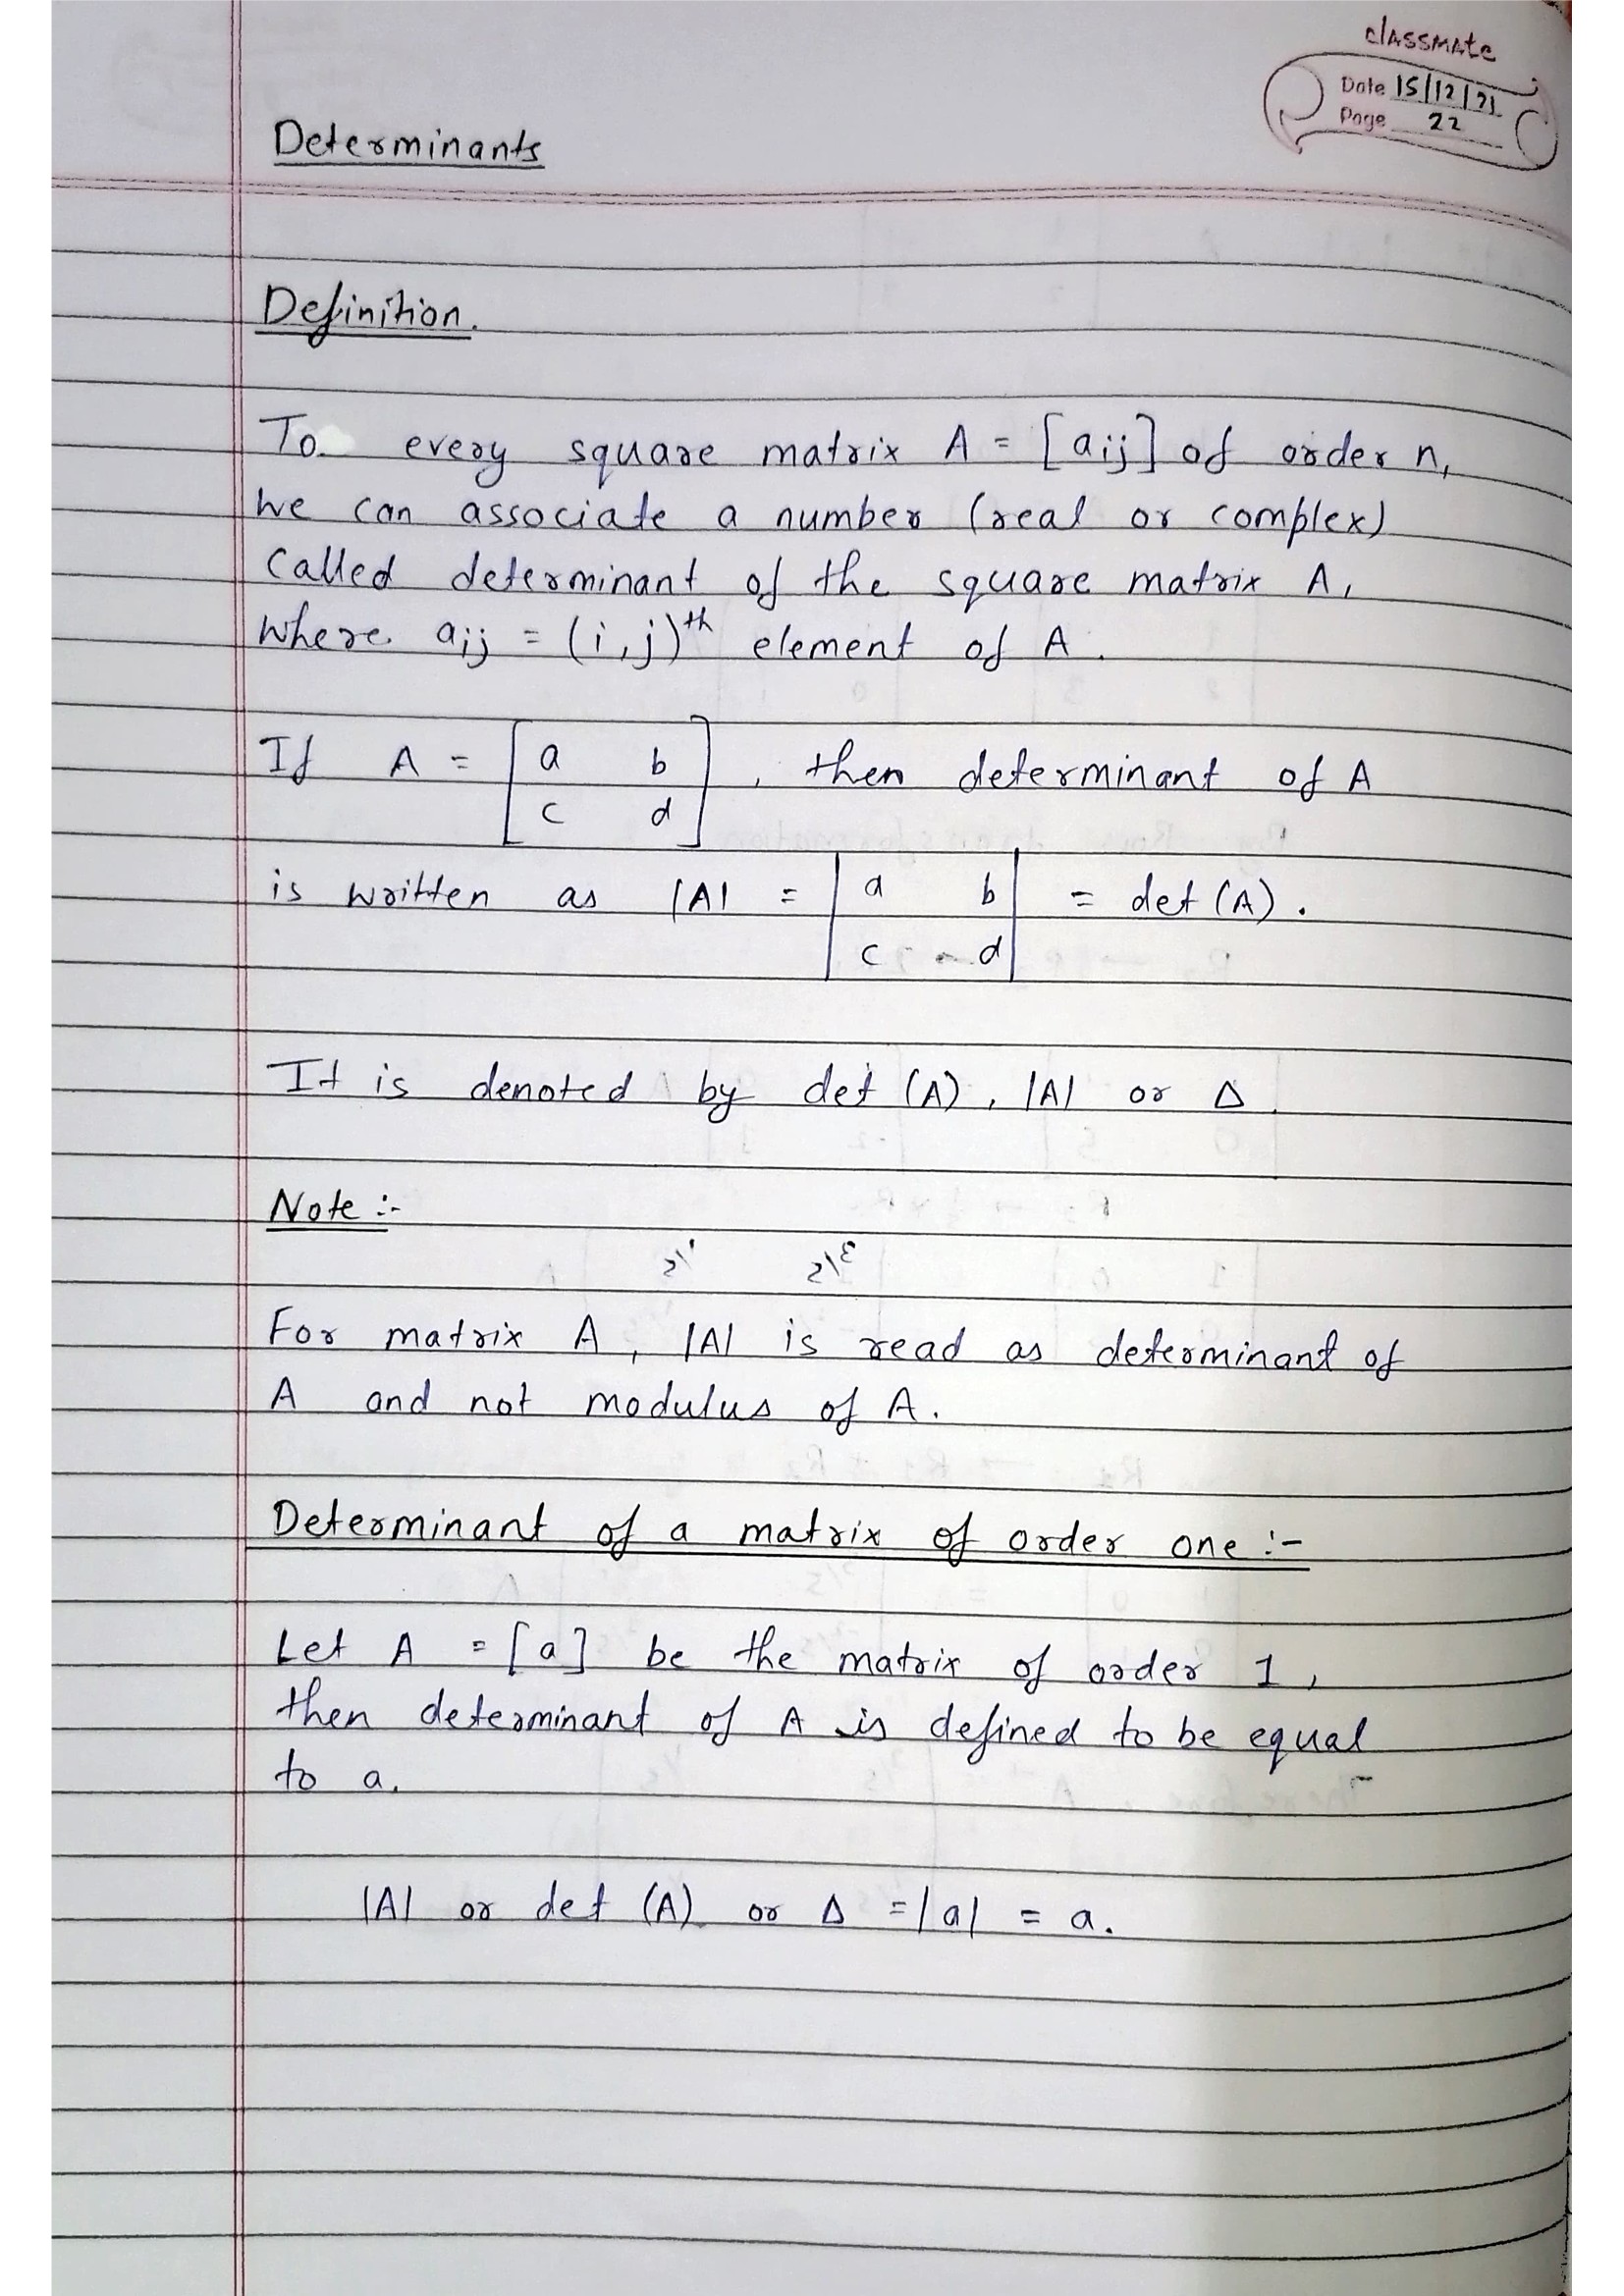 classmate
Date 15/12/21
Page 22
Determinants
Definition.
To every square matrix A = [aij] of order n,
we can associate a number (real or complex)
called determinant of the square matrix A,
where aij = (i,j)th element of A.
If A = [a b
c d], then determinant of A
is written as |A| = |a b
c d| = det (A).
It is denoted by det (A), |A| or Δ.
Note :-
For matrix A, |A| is read as determinant of
A and not modulus of A.
Determinant of a matrix of order one :-
Let A = [a] be the matrix of order 1,
then determinant of A is defined to be equal
to a.
|A| or det (A) or Δ = |a| = a.